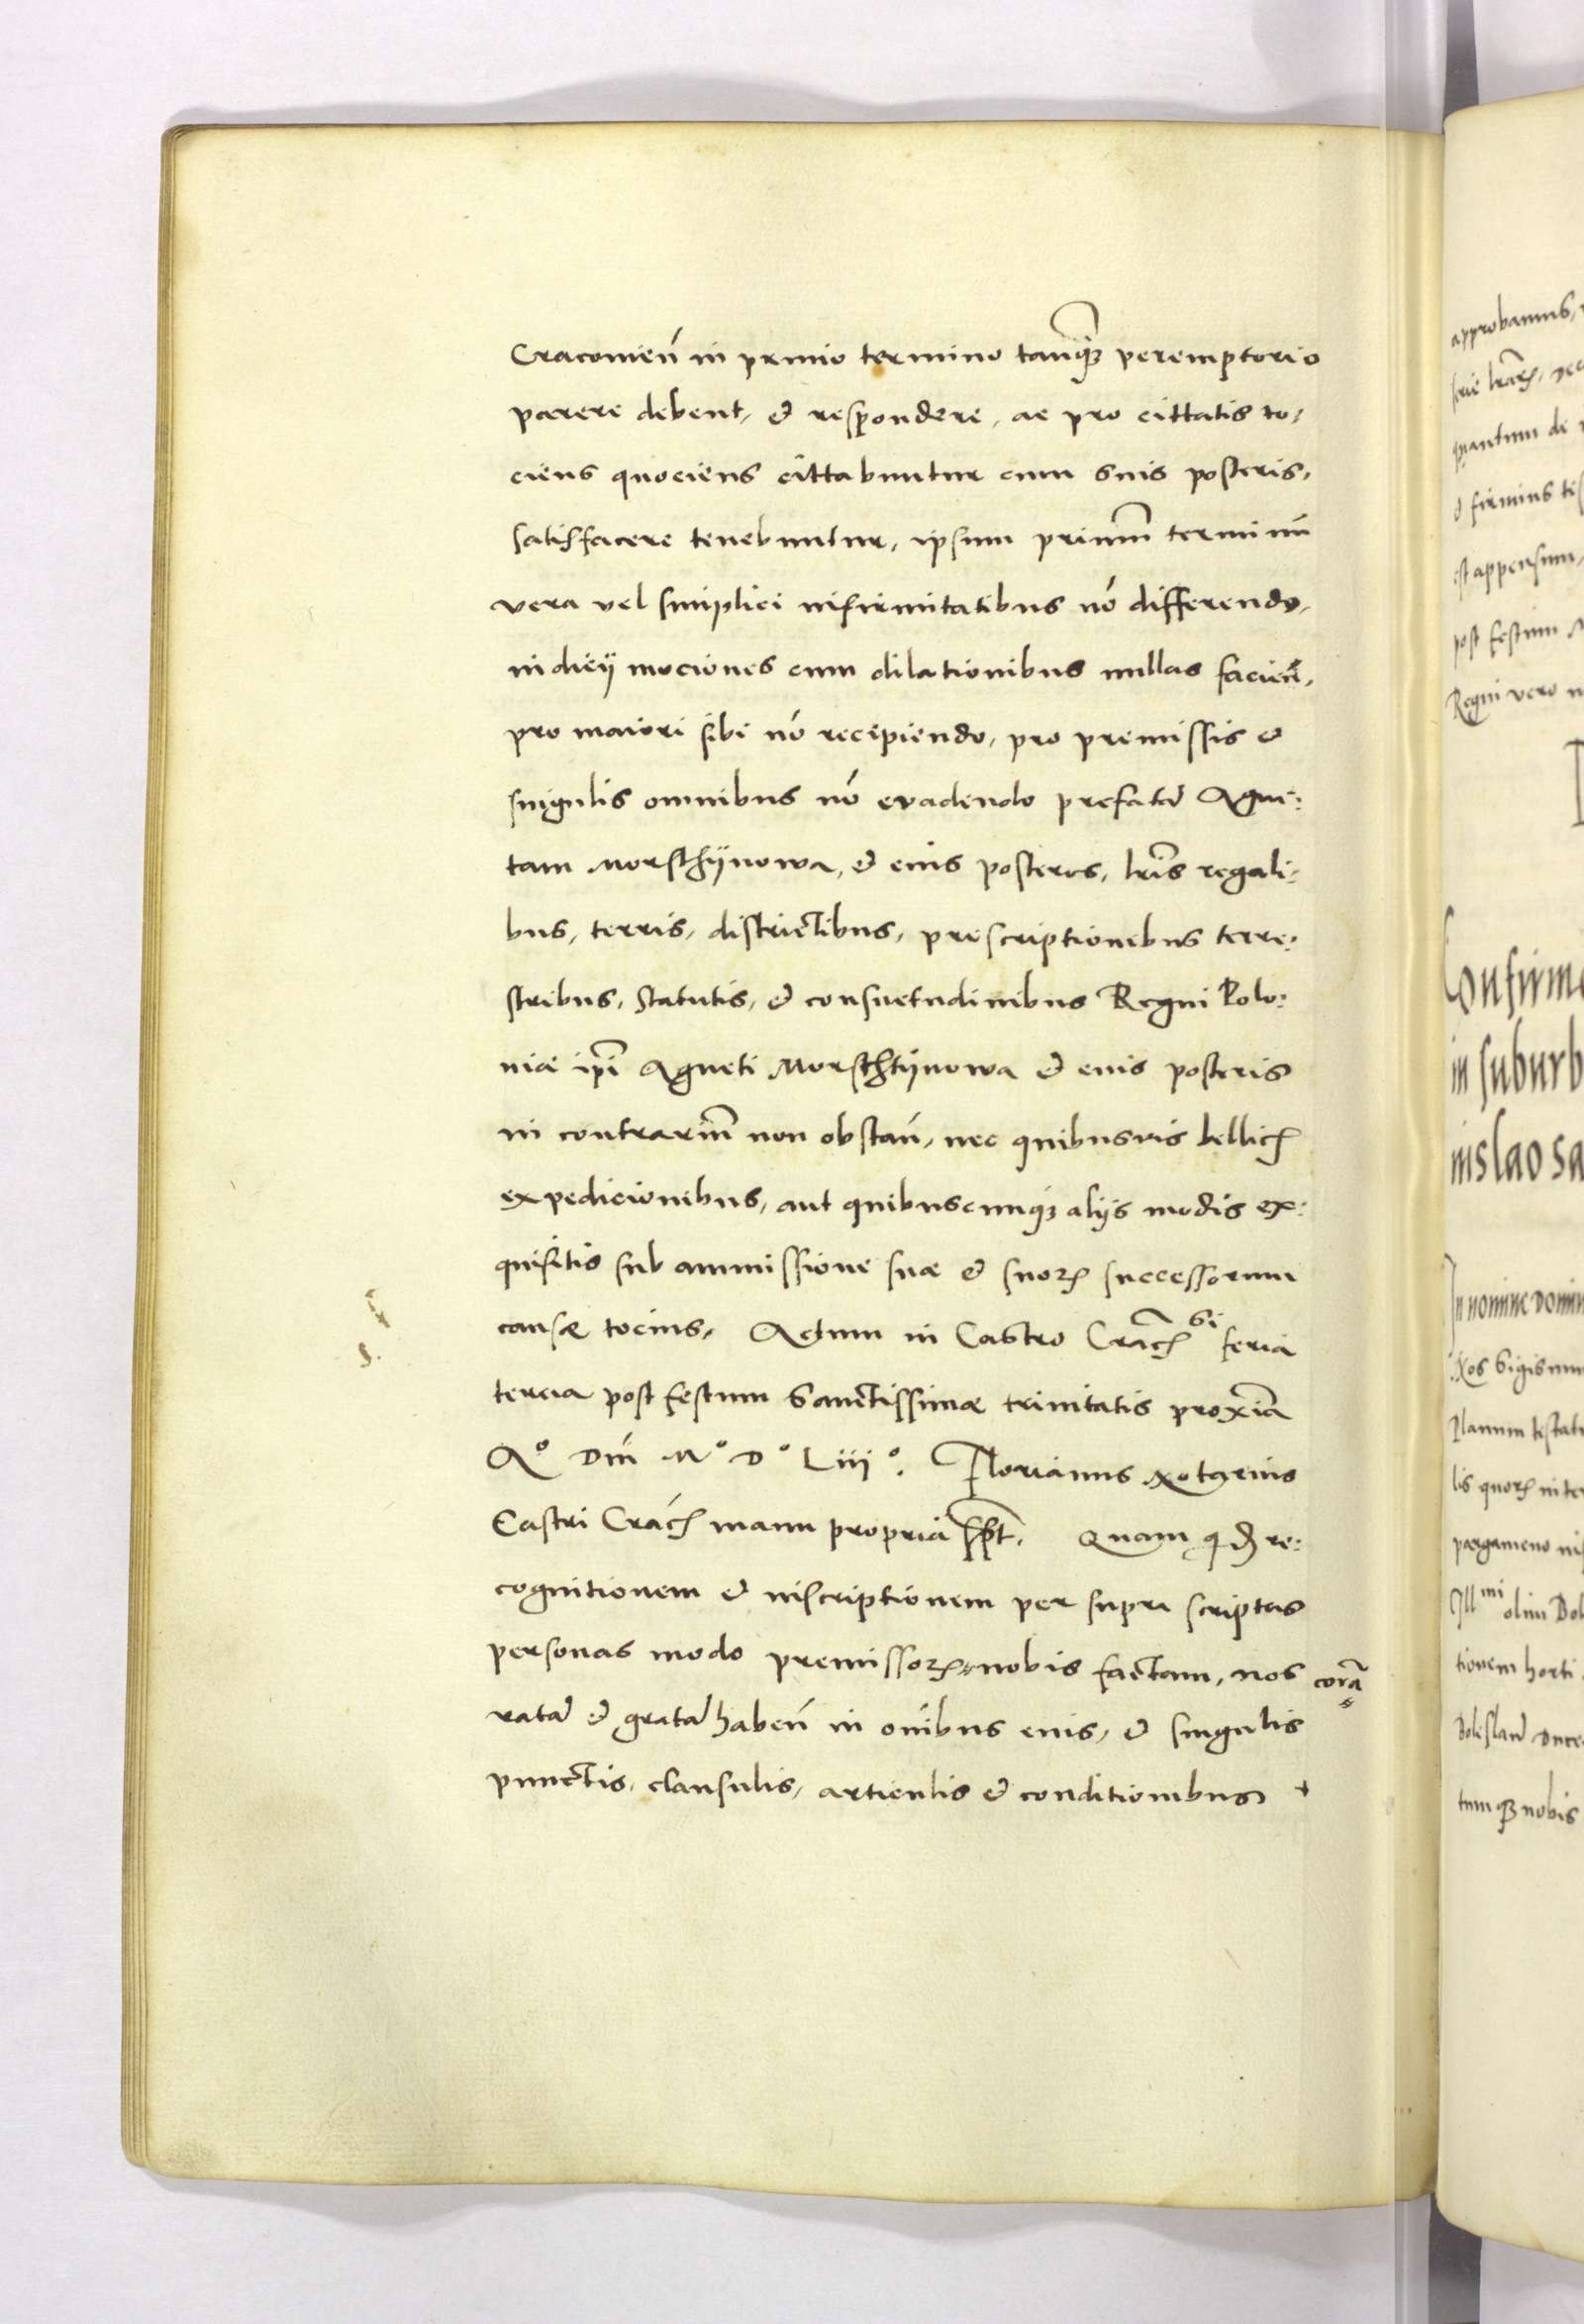 Cracovień in prmio termino tanq̃ꝫ peremptorio
parere debent, & respondere, ac pro cittatis to,
ciens quociens cittabuntur cum suis posteris,
satisfacere tenebuntur, ipsum primũ terminũ
vera vel simplici infirmitatibus nó differendo,
indiëÿ mociones cum dilationibus nullas facień,
pro maiori sibi nó recipiendo, pro premissis &
singulis omnibus nó evadendo prefatã Agne:
tam Morschÿnowa, & eius posteros, lr̃is regali:
bus, terris, districtibus, prescriptionebus terre:
stribus, statutis, & consuetudinibus Regni Polo:
niæ ip̃i Agneti Morschtÿnowa & eius posteris
in contrariũ non obstań, nec quibusvis bellicꝝ
expedicionibus, aut quibuscunqꝫ aliÿs modis ex:
quisitis sub ammissione suæ & suorꝝ successorum
causæ tocius, Actum in Castro Cracꝝ si feria
tercia post festum Sanctissimæ trinitatis proxĩa
Aº Dní Mº Dº Liijº. Florianus Notarius
Castri Cracꝝ manu propria sspt. Quam qdꝫ re:
cognitionem & inscriptionem per supra scriptas
personas modo premissorꝝ nobis factam, nos corã
ratã & gratã habeń in oḿibus eius, & singulis
punctis, clausulis, articulis & conditionibus +
S.
approbamus,
serie lr̃arꝝ, dec
quantum de
& firmius
est appensum,
post festum
Regni vero
Confirm
in suburb
nislao sa
In nomine Domin
Nos Sigismu
Planum testat
lis quorꝝ inte
pargameno
Ill mi olim Bol
tionem horti
Boleslaũ Duce
tumqꝫ nobis